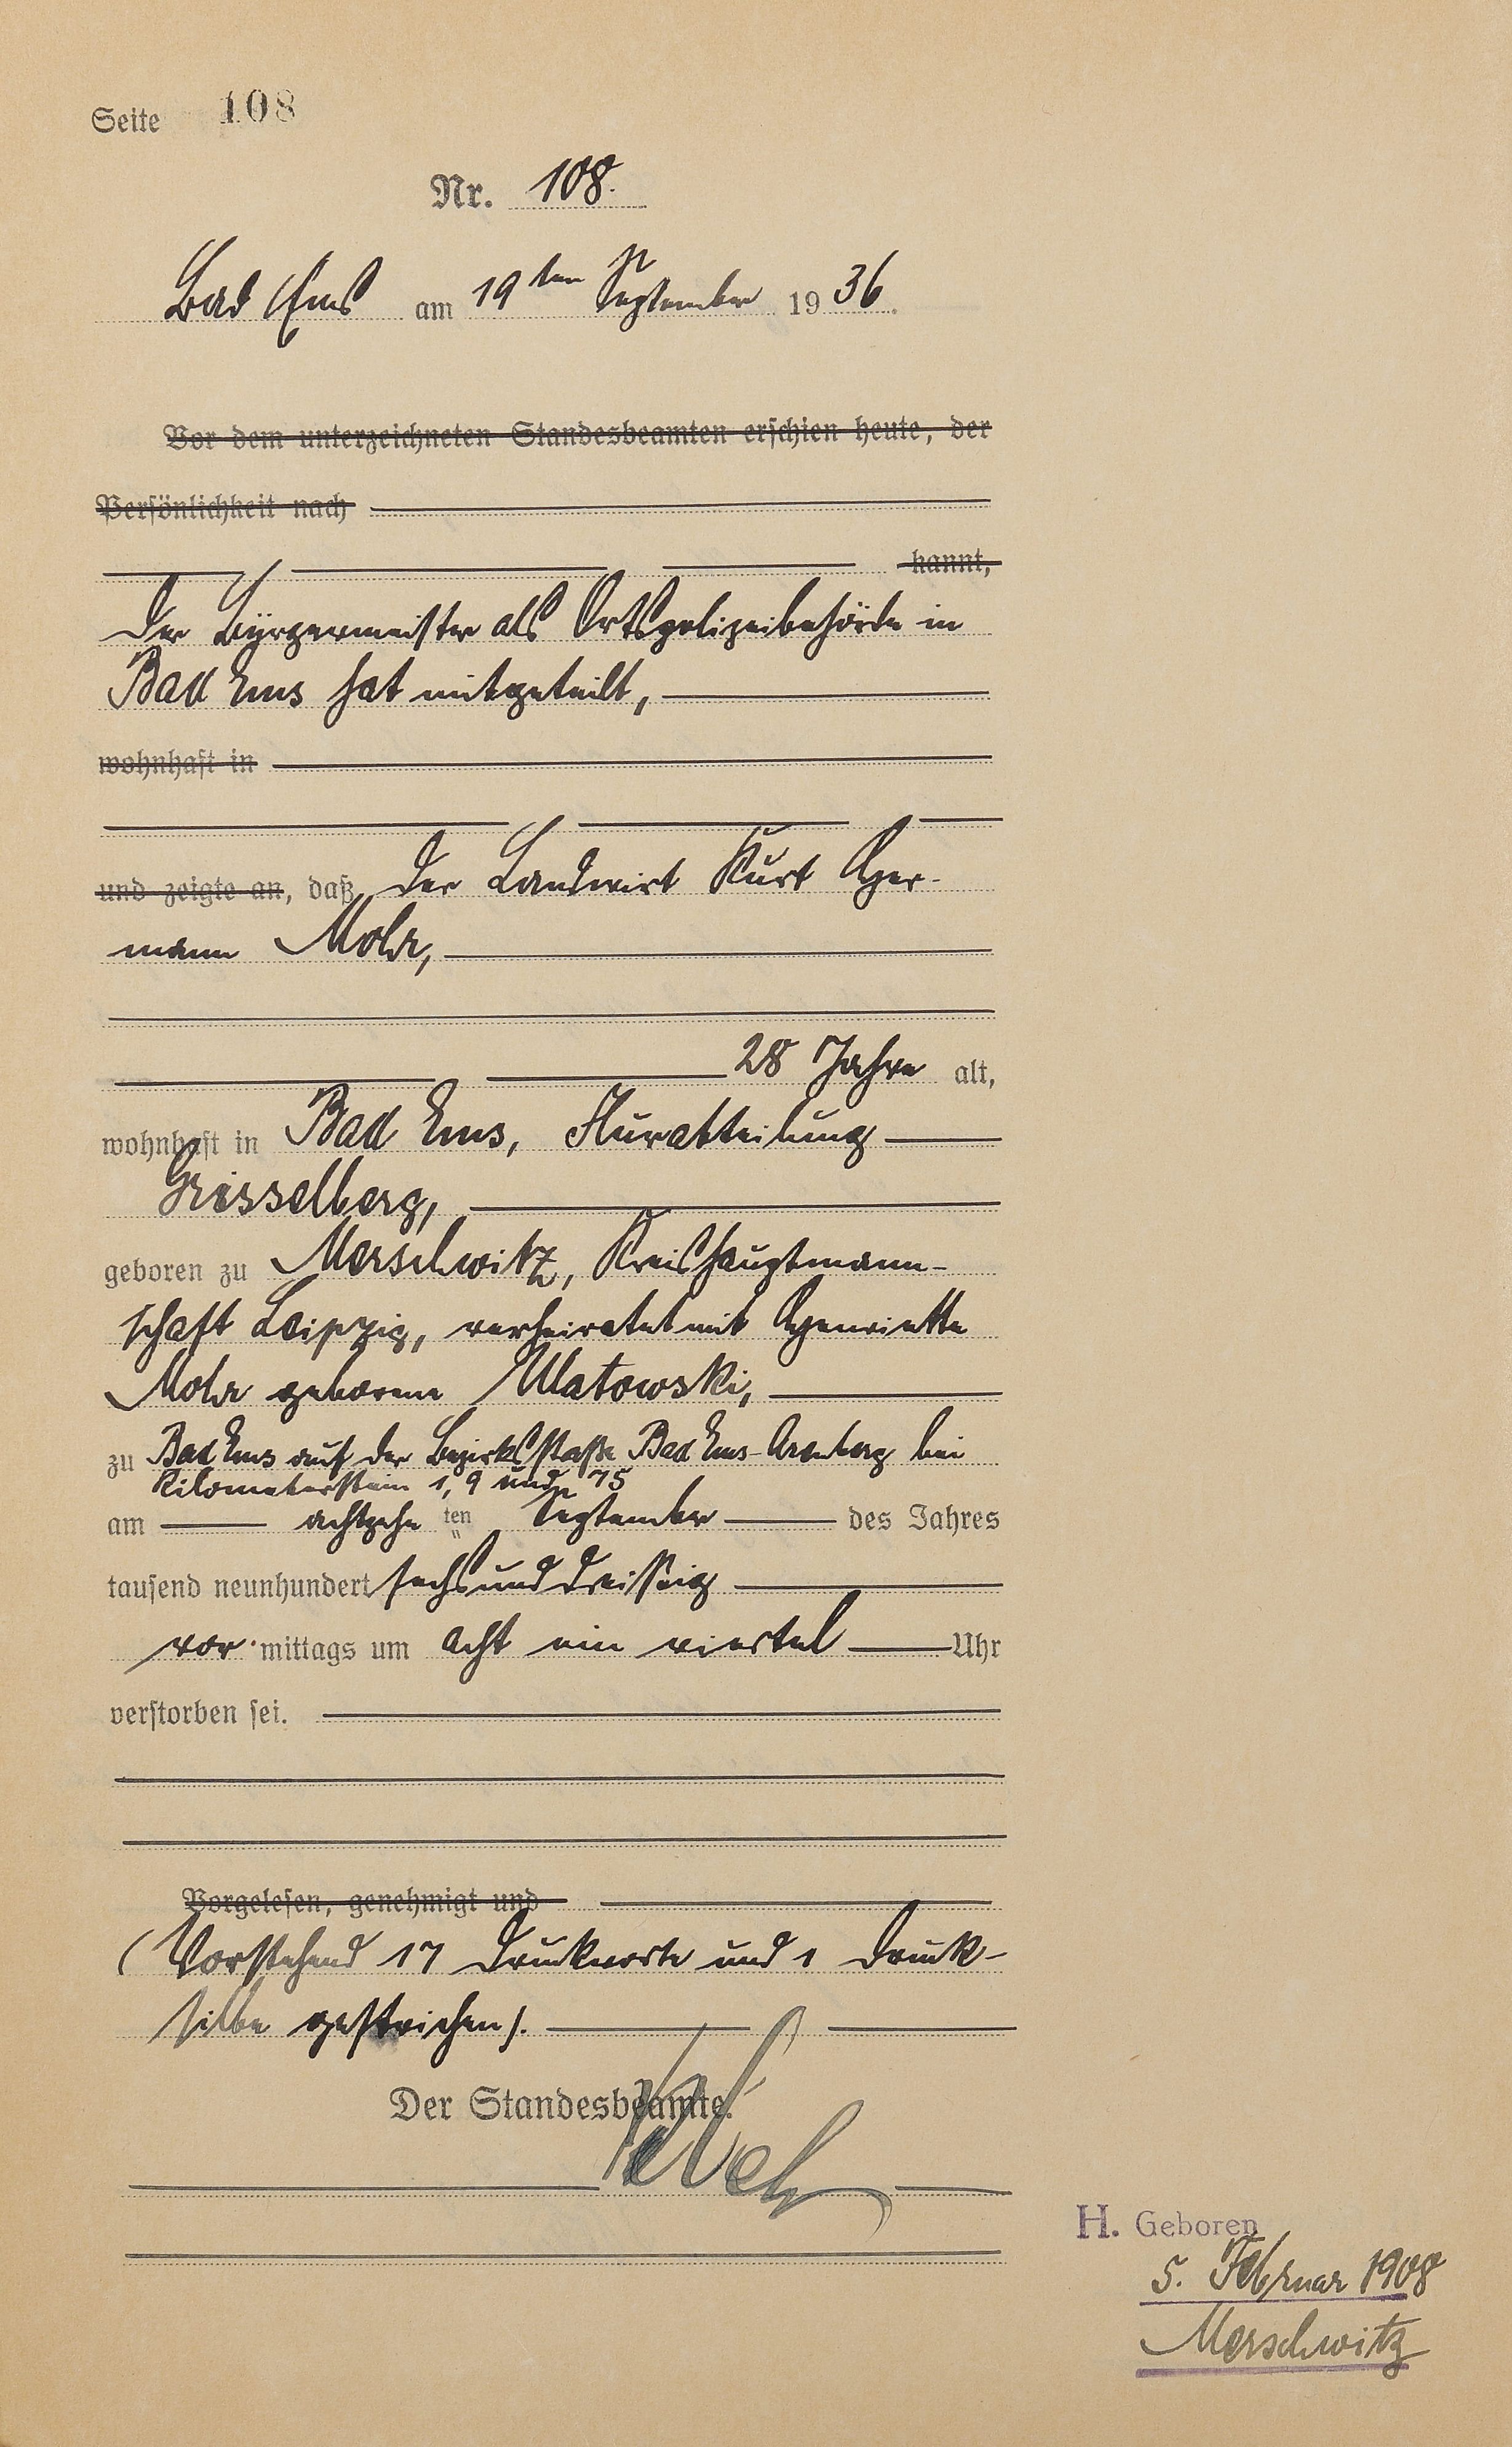 Seite 108
Nr. 108.
Bad Ems am 19ten September 1936.
Vor dem unterzeichneten Standesbeamten erschien heute, der
Persönlichkeit nach
kannt,
Der Bürgermeister als Ortspolizeibehörde in
Bad Ems hat mitgeteilt,
wohnhaft in
und zeigte an, daß der Landwirt Kurt Her-
mann Mohr,
28 Jahre alt,
wohnhaft in Bad Ems, Flurabteilung
Grisselberg,
geboren zu Merschwitz, Kreishauptmann-
schaft Leipzig, verheiratet mit Henriette
Mohr geborene Ulatowski,
zu Bad Ems auf der Bezirksstraße Bad Ems-Arenberg bei
Kilometerstein 1,9 und 75
am achtzehnten September des Jahres
tausend neunhundert sechsunddreißig
vormittags um acht ein viertel Uhr
verstorben sei.
Vorgelesen, genehmigt und
(Vorstehend 17 Druckworte und 1 Druck-
silbe gestrichen).
Der Standesbeamte.
H. Geboren
5. Februar 1908
Merschwitz